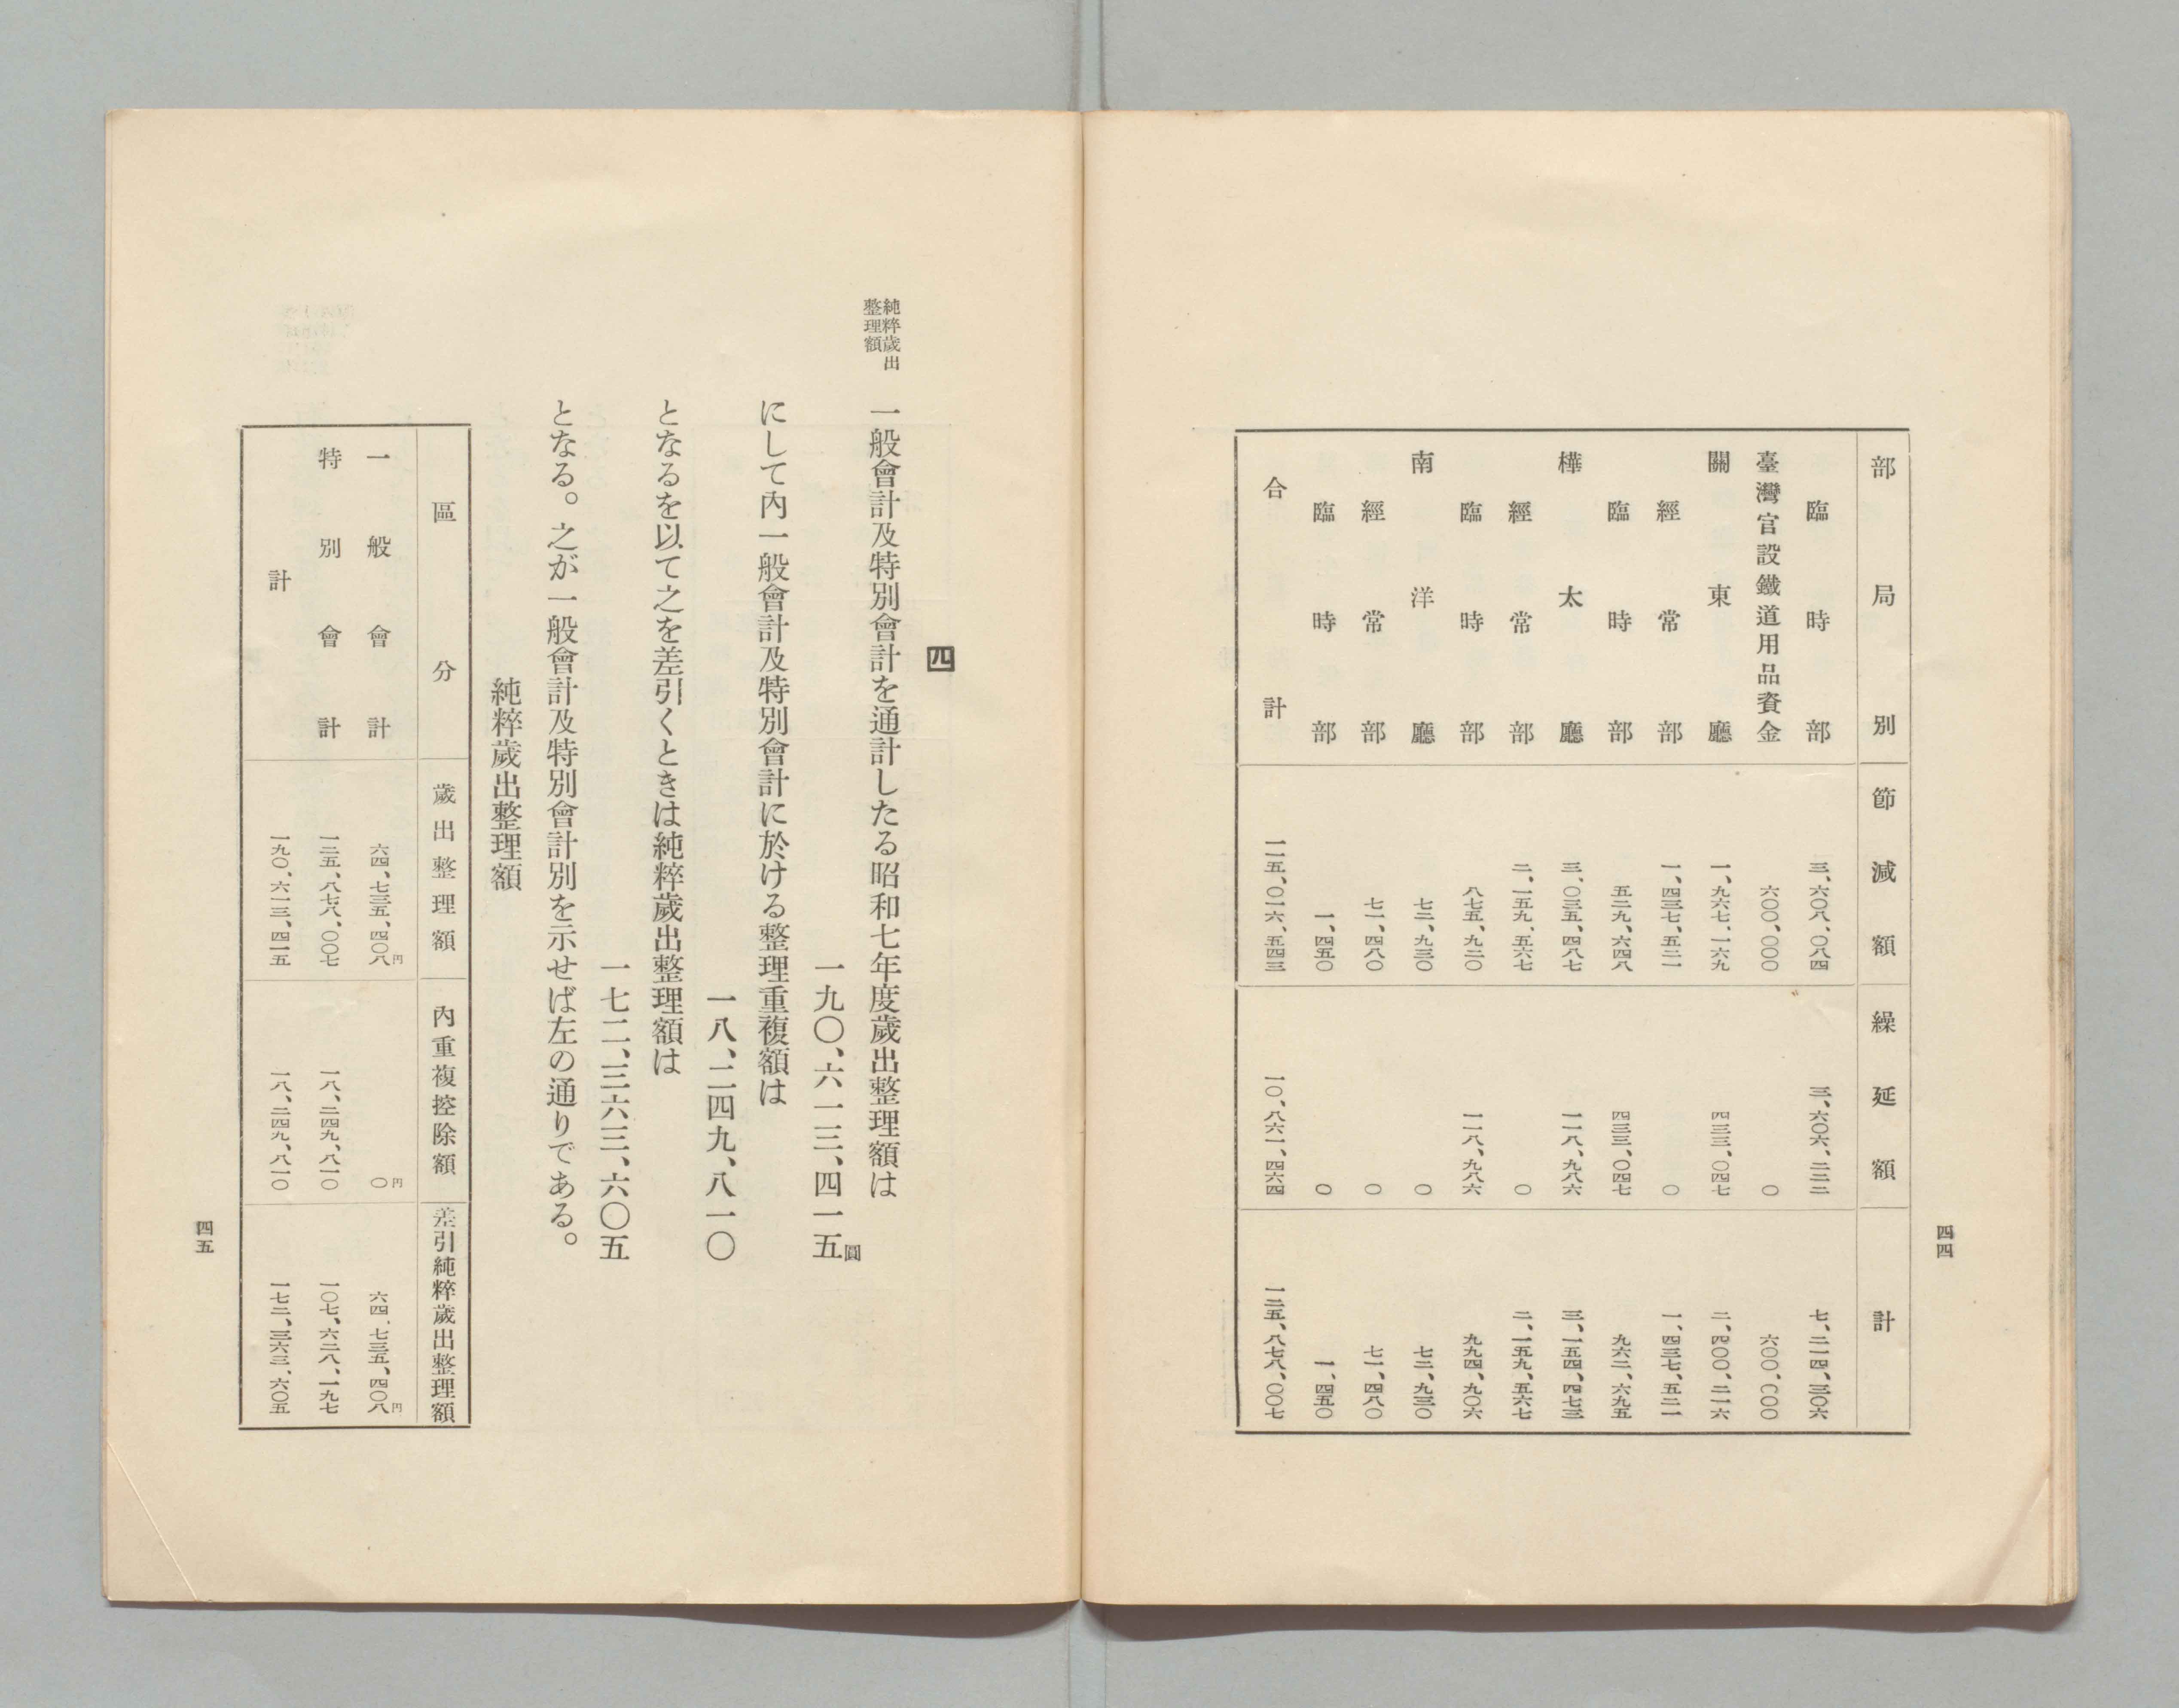 四四
部局別 節減額 繰延額 計
臨時部 三、六〇八、〇八四 三、六〇六、二二二 七、二一四、三〇六
臺灣官設鐵道用品資金 六〇〇、〇〇〇 〇 六〇〇、〇〇〇
關東廳 一、九六七、一六九 四三三、〇四七 二、四〇〇、二一六
經常部 一、四三七、五二一 〇 一、四三七、五二一
臨時部 五二九、六四八 四三三、〇四七 九六二、六九五
樺太廳 三、〇三五、四八七 一一八、九八六 三、一五四、四七三
經常部 二、一五九、五六七 〇 二、一五九、五六七
臨時部 八七五、九二〇 一一八、九八六 九九四、九〇六
南洋廳 七二、九三〇 〇 七二、九三〇
經常部 七一、四八〇 〇 七一、四八〇
臨時部 一、四五〇 〇 一、四五〇
合計 一一五、〇一六、五四三 一〇、八六一、四六四 一二五、八七八、〇〇七
四
純粹歲出
整理額
一般會計及特別會計を通計したる昭和七年度歲出整理額は
一九〇、六一三、四一五圓
にして內一般會計及特別會計に於ける整理重複額は
一八、二四九、八一〇
となるを以て之を差引くときは純粹歲出整理額は
一七二、三六三、六〇五
となる。之が一般會計及特別會計別を示せば左の通りである。
純粹歲出整理額
區分 歲出整理額 內重複控除額 差引純粹歲出整理額
一般會計 六四、七三五、四〇八円 〇円 六四、七三五、四〇八円
特別會計 一二五、八七八、〇〇七 一八、二四九、八一〇 一〇七、六二八、一九七
計 一九〇、六一三、四一五 一八、二四九、八一〇 一七二、三六三、六〇五
四五